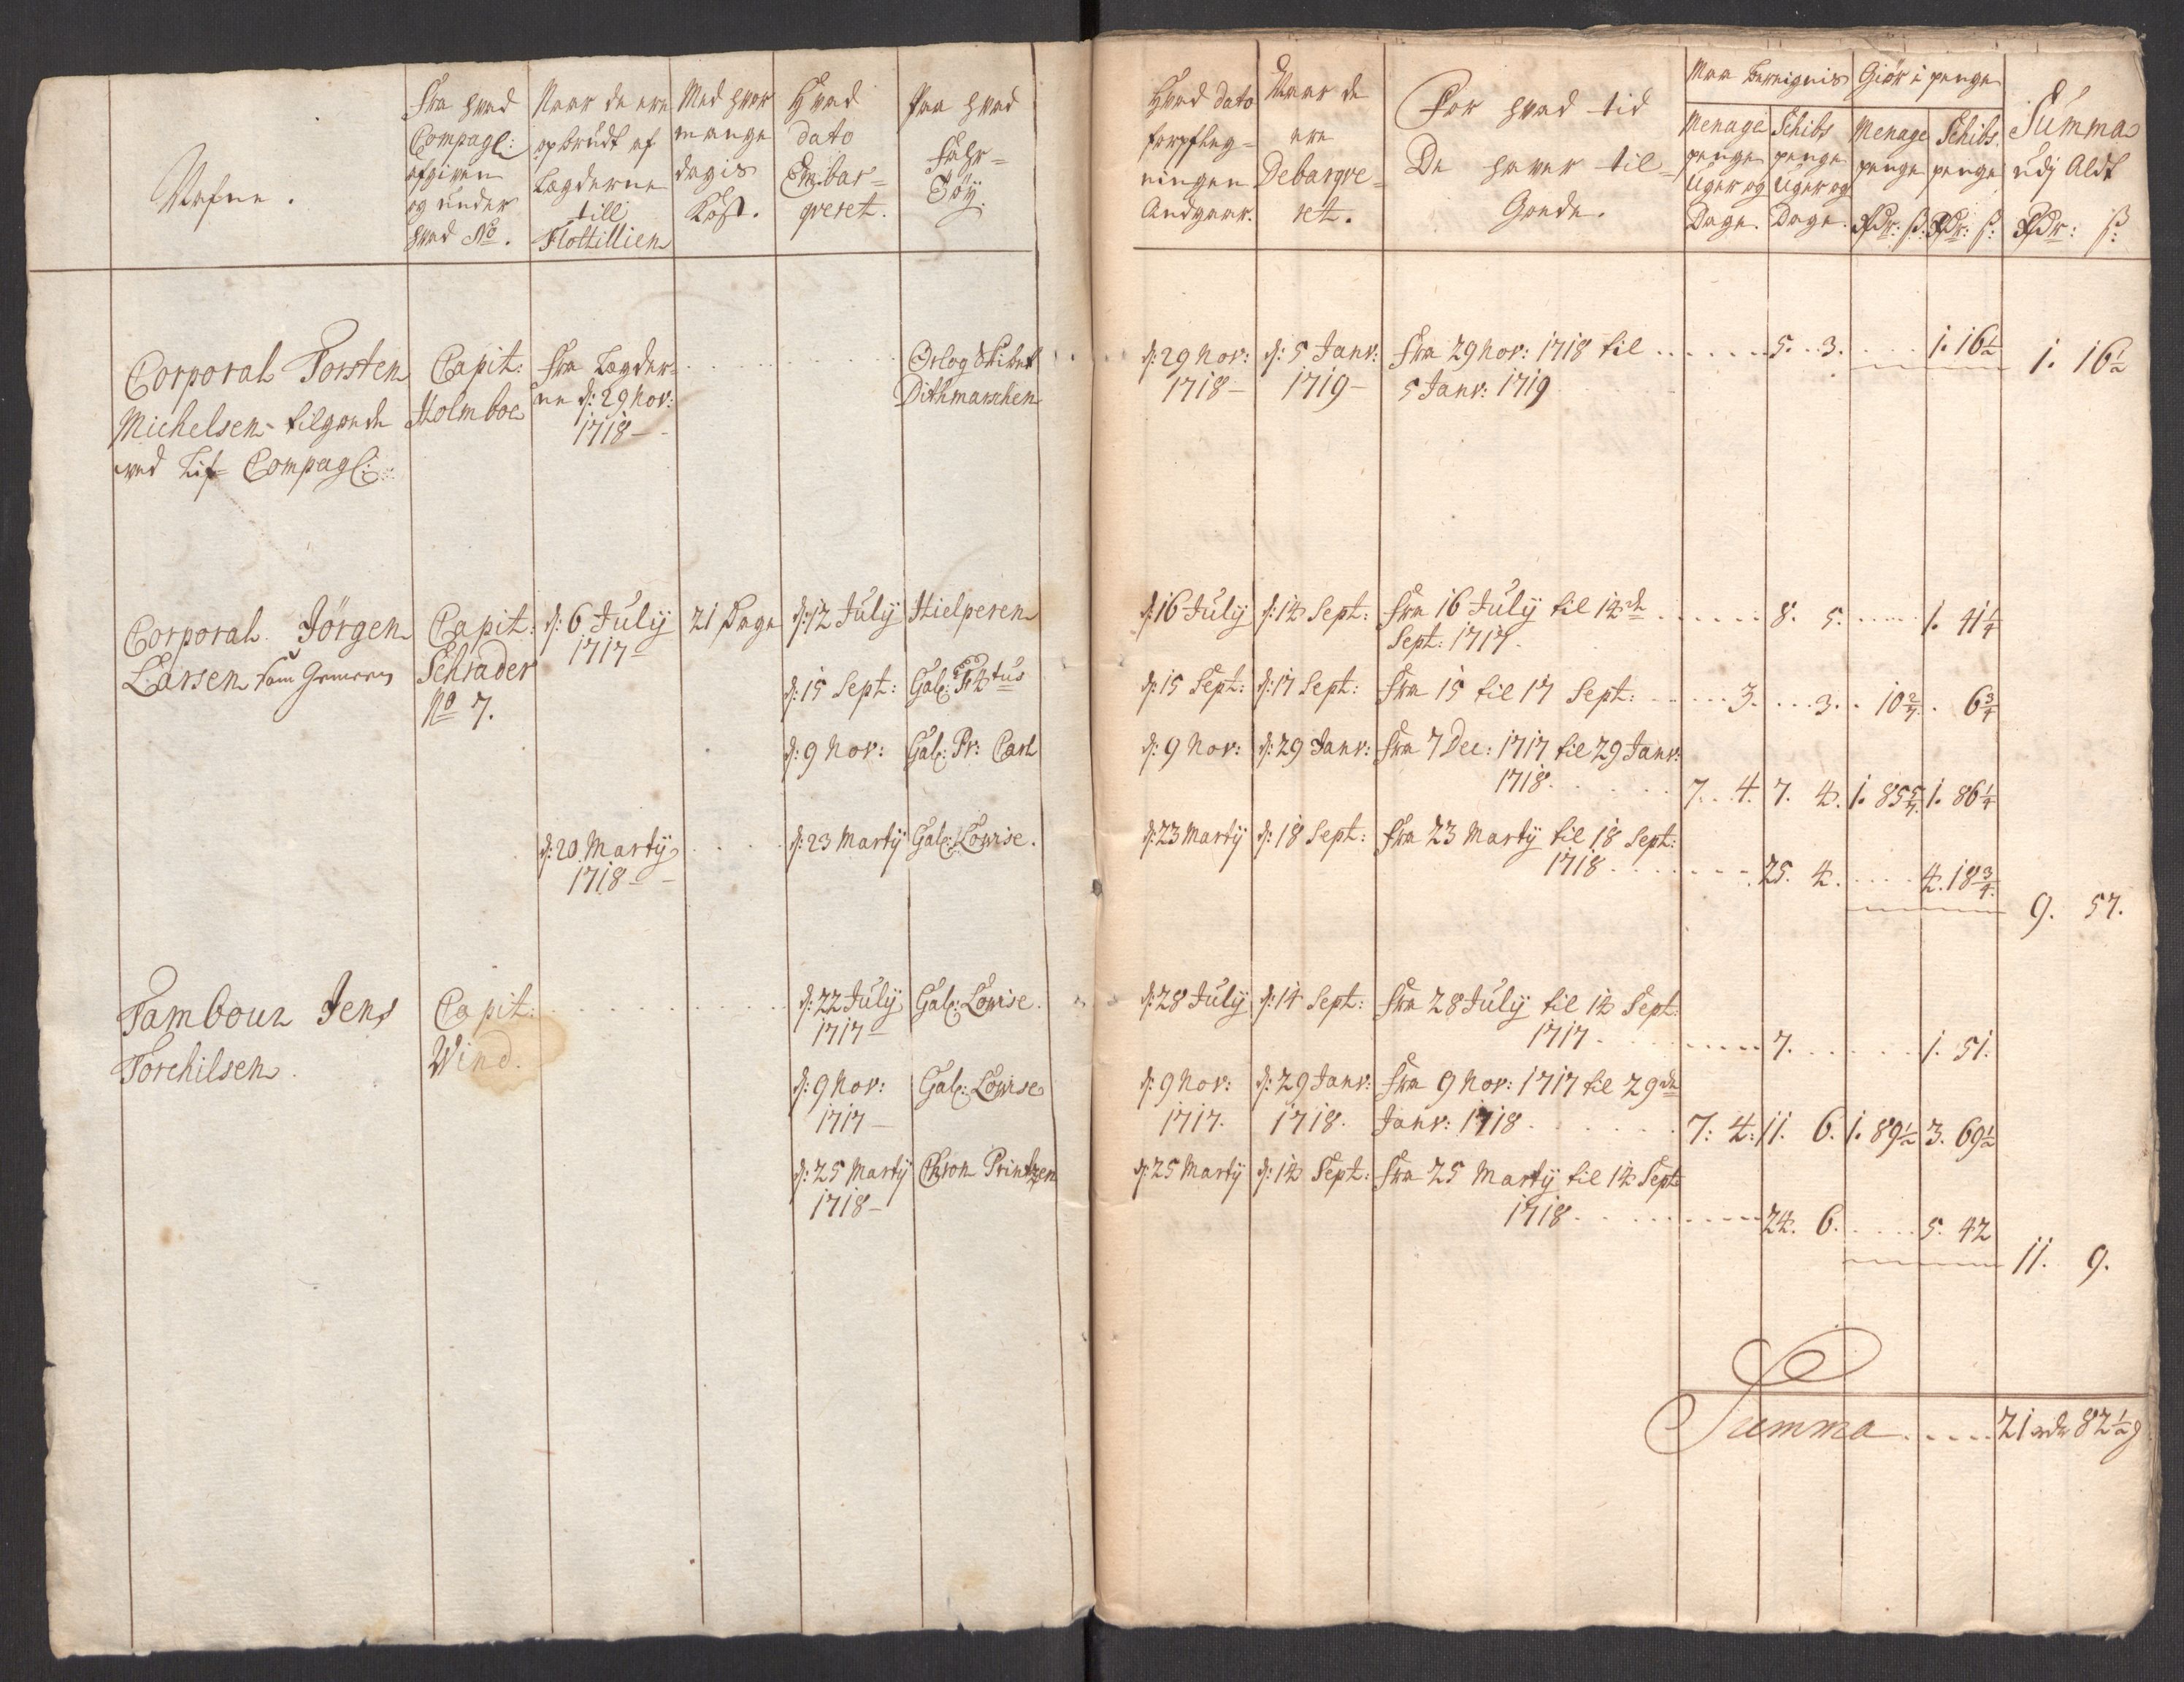 Nafne.
Fra hvad
Compagl:
afgiven
og under
hvad No.
Naar de ere
opbrudt af
Lægderne
till
Flottillien
Med hvor
mange
dagis
Kost.
Hvad
dato
Embar=
qveret.
Paa hvad
Fahr=
Töÿ.
Hvad dato
forpfleg=
ningen
Andgaar.
Naar de
ere
Debarqve=
ret.
For hvad tid
De haver til=
Gode.
Maa bereignis
Menage
penge
Uger og
Dage.
Schibs
penge
Uger og
Dage.
Giör i penge
Menage
penge
Rdr: ß:
Schibs
penge
Rdr: ß:
Summa
udj Aldt
Rdr: ß:
Corporal Torsten
Michelsen tilgode
ved Lif= Compagl:
Capit:
Holmboe
Fra Lægder=
ne d: 29 Nov:
1718
Orlog Skibet
Dithmarschen
d: 29 Nov:
1718
d: 5 Janv:
1719
Fra 29 Nov: 1718 til
5 Janv: 1719
5. 3. 1. 16½ 1. 16½
Corporal Jörgen
Larsen
Capit:
Schrader
No 7.
d: 6 Julÿ
1717
21 Dage
d: 12 Julÿ Hielperen
d: 16 Julÿ d: 14 Sept: Fra 16 Julÿ til 14de
Sept: 1717. 8. 5. 1. 41¼
d: 15 Sept: Gal: Fr: 4tus
d: 15 Sept: d: 17 Sept: Fra 15 til 17 Sept: 3. 3. 10 2/7. 6¾
d: 9 Nov: Gal: Pr: Carl
d: 9 Nov: d: 29 Janv: Fra 7 Dec: 1717 til 29 Janv:
1718. 7. 4. 7. 4. 1. 85 5/7. 1. 86¼
d: 20 Martÿ
1718
d: 23 Martÿ Gal: Lowise.
d: 23 Martÿ d: 18 Sept: Fra 23 Martÿ til 18 Sept:
1718 25. 4. 4. 18¾
9. 57.
Tambour Jens
Torchilsen
Capit:
Wind.
d: 22 Julÿ
1717
Gal: Lowise.
d: 28 Julÿ d: 14 Sept: Fra 28 Julÿ til 14 Sept:
1717. 7. 1. 51.
d: 9 Nov:
1717
Gal: Lowise
d: 9 Nov:
1717.
d: 29 Janv:
1718.
Fra 9 Nov: 1717 til 29de
Janv: 1718. 7: 4: 11. 6. 1. 89½ 3. 69½
d: 25 Martÿ
1718
Chron Printzen
d: 25 Martÿ d: 14 Sept: Fra 25 Martÿ til 14 Sept:
1718. 24. 6. 5. 42
11. 9.
Summa 21 rdr 82½ ß